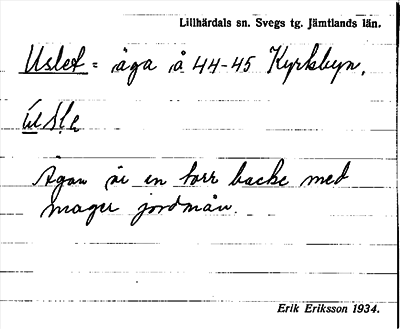 Lillhärdals sn. Svegs tg. Jämtlands län.
Uslet = äga å 44-45 Kyrkbyn.
Ägan är en torr backe med
mager jordmån.
Erik Eriksson 1934.